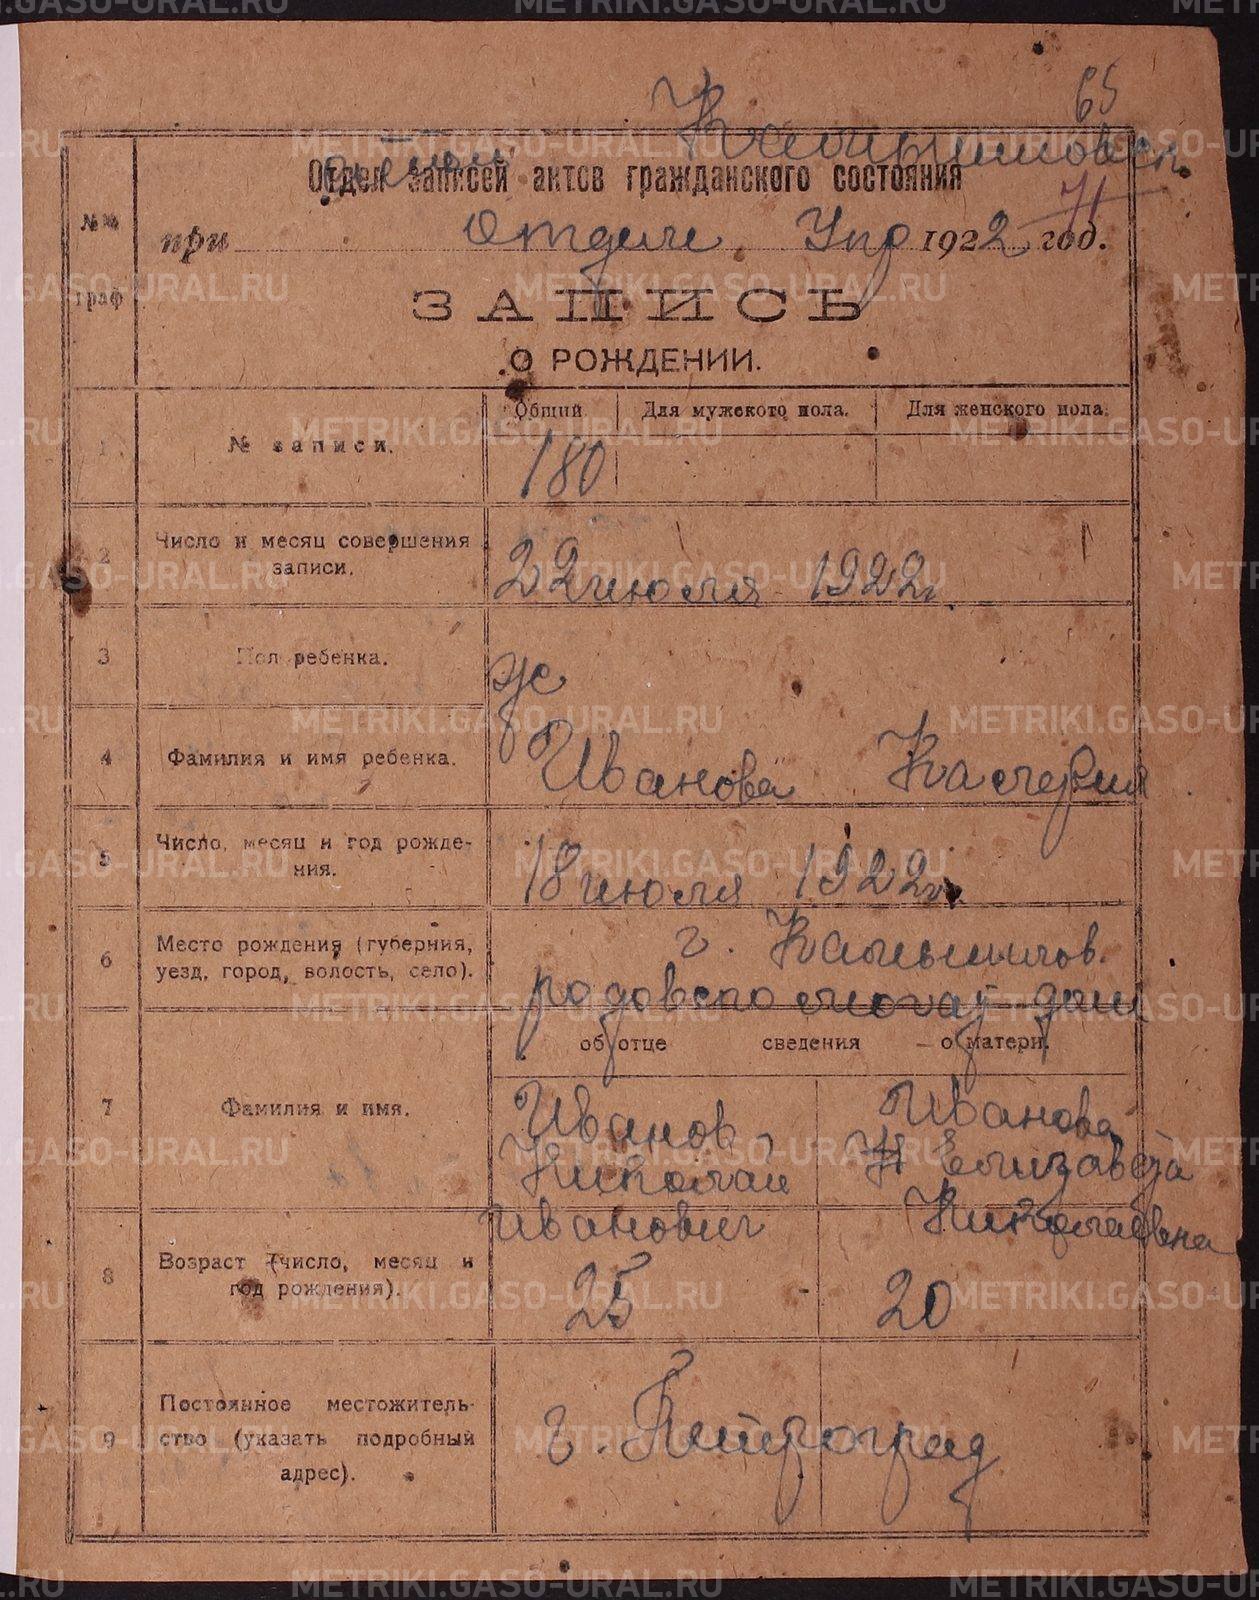 65
Камышловск.
Отдел записей актов гражданского состояния
71
при Отделе Упр 1922 год.
№№ граф
ЗАПИСЬ
О РОЖДЕНИИ.
Общий Для мужского пола. Для женского пола.
1 № записи. 180
2 Число и месяц совершения
записи.
22 июля 1922 г.
3 Пол ребенка. ж
4 Фамилия и имя ребенка. Иванова Калерия
5 Число, месяц и год рожде-
ния.
18 июля 1922 г.
6 Место рождения (губерния,
уезд, город, волость, село).
г. Камышлов.
об отце сведения о матери.
7 Фамилия и имя.
Иванов Иванова
Николай Елизавета
Иванович Николаевна
8 Возраст (число, месяц и
год рождения).
25 20
9 Постоянное местожитель-
ство (указать подробный
адрес).
г. Петроград
METRIKI.GASO-URAL.RU